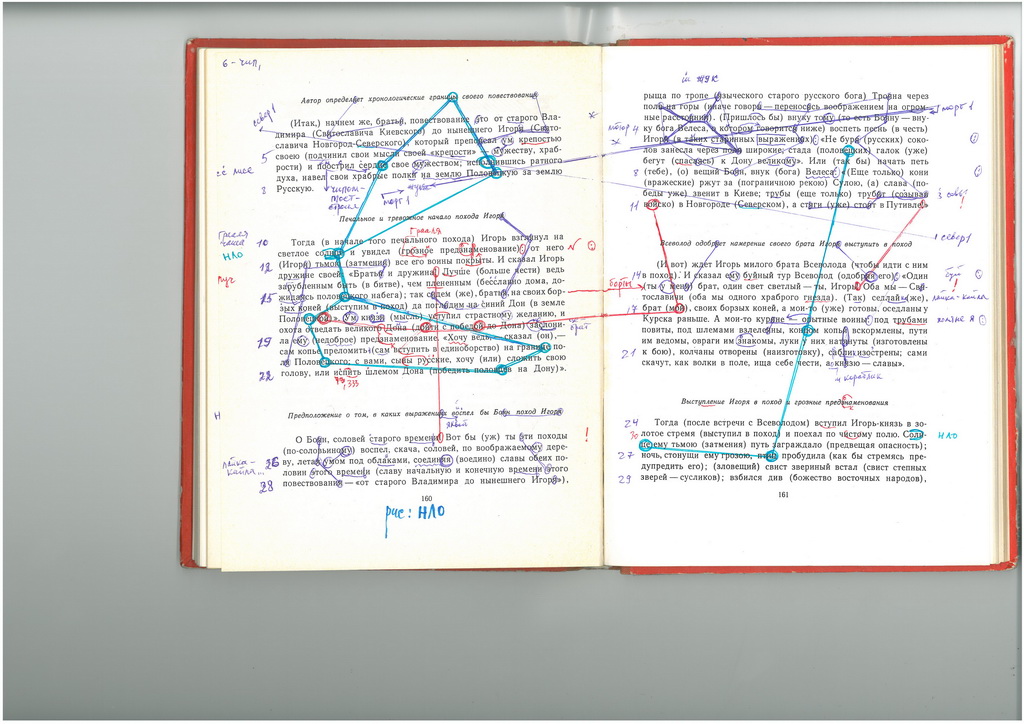 6 - чип,
Автор определяет хронологические границы своего повествования
(Итак,) начнем же, братья, повествование это от старого Вла-
димира (Святославича Киевского) до нынешнего Игоря (Свято-
славича Новгород-Северского), который препоясал ум крепостью
5
своею (подчинил свои мысли своей «крепости» — мужеству, храб-
рости) и поострил сердце свое мужеством; исполнившись ратного
духа, навел свои храбрые полки на землю Половецкую за землю
8
Русскую.
Печальное и тревожное начало похода Игоря
Грааля
10
Тогда (в начале того печального похода) Игорь взглянул на
НЛО
светлое солнце и увидел (грозное предзнаменование): от него
12
(Игоря) тьмою (затмения) все его воины покрыты. И сказал Игорь
дружине своей: «Братья и дружина! Лучше (больше чести) ведь
зарубленным быть (в битве), чем плененным (бесславно дома, до-
15
жидаясь половецкого набега); так сядем (же), братья, на своих бор-
зых коней (выступим в поход) да поглядим на синий Дон (в земле
Половецкой)». Ум князя (мысль) уступил страстному желанию, и
охота отведать великого Дона (дойти с победою до Дона) заслони-
19
ла ему (недоброе) предзнаменование. «Хочу ведь,— сказал (он),—
сам копье преломить (сам вступить в единоборство) на границе по-
ля Половецкого; с вами, сыны русские, хочу (или) сложить свою
22
голову, или испить шлемом Дона (победить половцев на Дону)».
333
Н
Предположение о том, в каких выражениях воспел бы Боян поход Игоря
О Боян, соловей старого времени! Вот бы (уж) ты эти походы
(по-соловьиному) воспел, скача, соловей, по воображаемому дере-
26
ву, летая умом под облаками, соединяя (воедино) славы обеих по-
ловин этого времени (славу начальную и конечную времени этого
28
повествования — «от старого Владимира до нынешнего Игоря»),
160
рис: НЛО
жук
рыща по тропе (языческого старого русского бога) Трояна через
поля на горы (иначе говоря — переносясь воображением на огром-
ные расстояния). (Пришлось бы) внуку тому (то есть Бояну — вну-
ку бога Велеса, о котором говорится ниже) воспеть песнь (в честь)
Игоря (в таких старинных выражениях): «Не буря (русских) соко-
лов занесла через поля широкие, стада (половецких) галок (уже)
бегут (спасаясь) к Дону великому». Или (так бы) начать петь
8
(тебе), (о) вещий Боян, внук (бога) Велеса: «(Еще только) кони
(вражеские) ржут за (пограничною рекою) Сулою, (а) слава (по-
беды уже) звенит в Киеве; трубы (еще только) трубят (созывая
11
войско) в Новгороде (Северском), а стяги (уже) стоят в Путивле!»
1 север1
Всеволод одобряет намерение своего брата Игоря выступить в поход
(И вот) ждет Игорь милого брата Всеволода (чтобы идти с ним
14
в поход). И сказал ему буйный тур Всеволод (одобряя его): «Один
(ты у меня) брат, один свет светлый — ты, Игорь! Оба мы — Свя-
тославичи (оба мы одного храброго гнезда). (Так) седлай (же),
17
брат (мой), своих борзых коней, а мои-то (уже) готовы, оседланы у
Курска раньше. А мои-то куряне — опытные воины: под трубами
повиты, под шлемами взлелеяны, концом копья вскормлены, пути
им ведомы, овраги им знакомы, луки у них натянуты (изготовлены
21
к бою), колчаны отворены (наизготовку), сабли изострены; сами
скачут, как волки в поле, ища себе чести, а князю — славы».
Выступление Игоря в поход и грозные предзнаменования
24
Тогда (после встречи с Всеволодом) вступил Игорь-князь в зо-
лотое стремя (выступил в поход) и поехал по чистому полю. Солн-
НЛО
27
це ему тьмою (затмения) путь заграждало (предвещая опасность);
ночь, стонущи ему грозою, птиц пробудила (как бы стремясь пре-
дупредить его); (зловещий) свист звериный встал (свист степных
29
зверей — сусликов); взбился див (божество восточных народов),
161